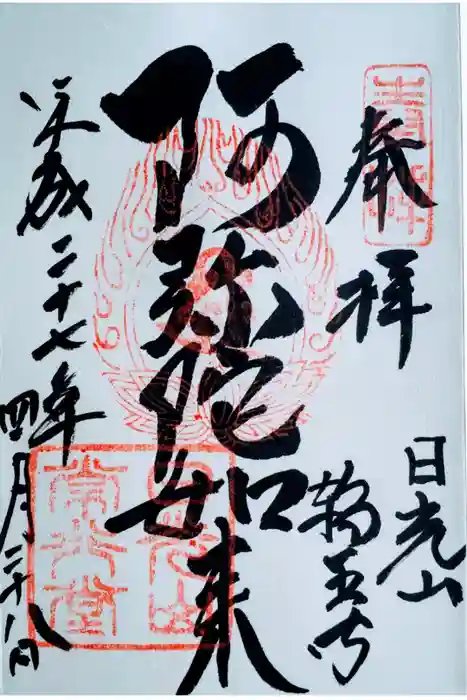 奉拝
日光山
輪王寺
阿弥陀如来
平成二十七年
四月二十八日
日光山
常行堂